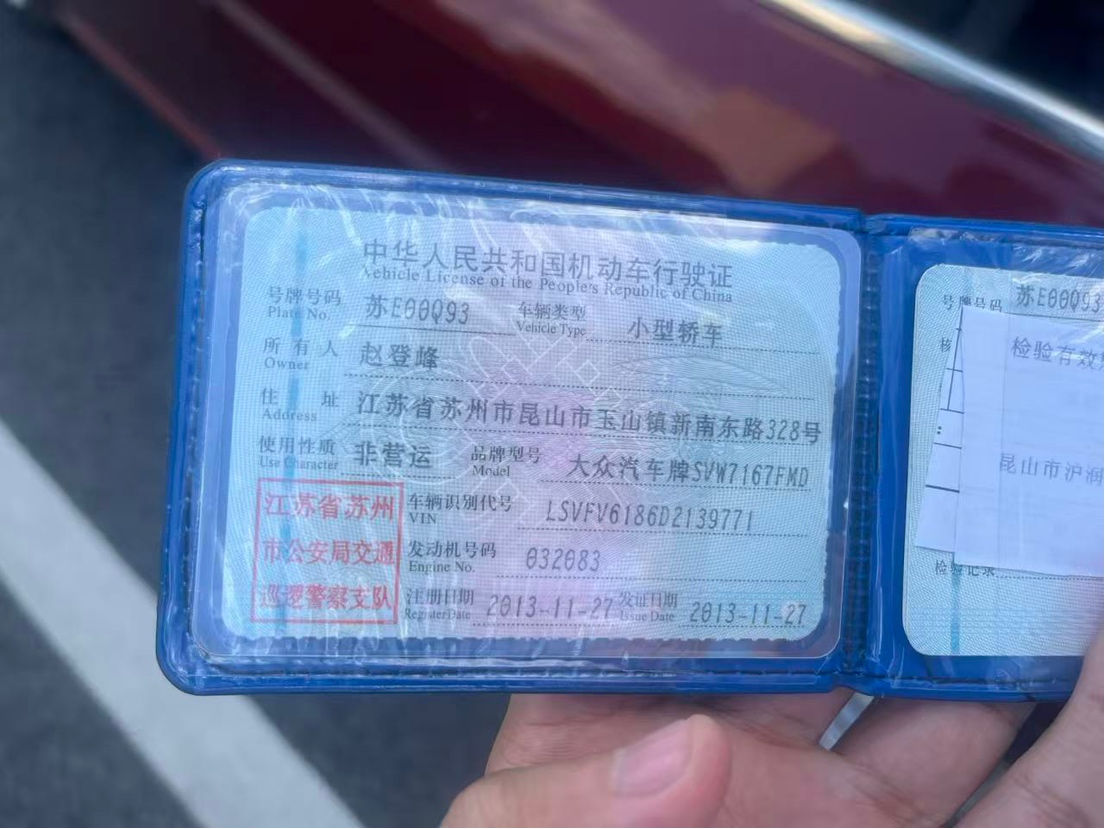 中华人民共和国机动车行驶证
Vehicle License of the People's Republic of China
号牌号码 苏E00Q93 车辆类型 小型轿车
Plate No. Vehicle Type
所有人 赵登峰
Owner
住址 江苏省苏州市昆山市玉山镇新南东路328号
Address
使用性质 非营运 品牌型号 大众汽车牌SVW7167FMD
Use Character Model
江苏省苏州
市公安局交通
巡逻警察支队
车辆识别代号 LSVFV6186D2139771
VIN
发动机号码 032083
Engine No.
注册日期 2013-11-27 发证日期 2013-11-27
Register Date Issue Date
号牌号码 苏E00Q93
核
检验有效
昆山市沪润
检验记录